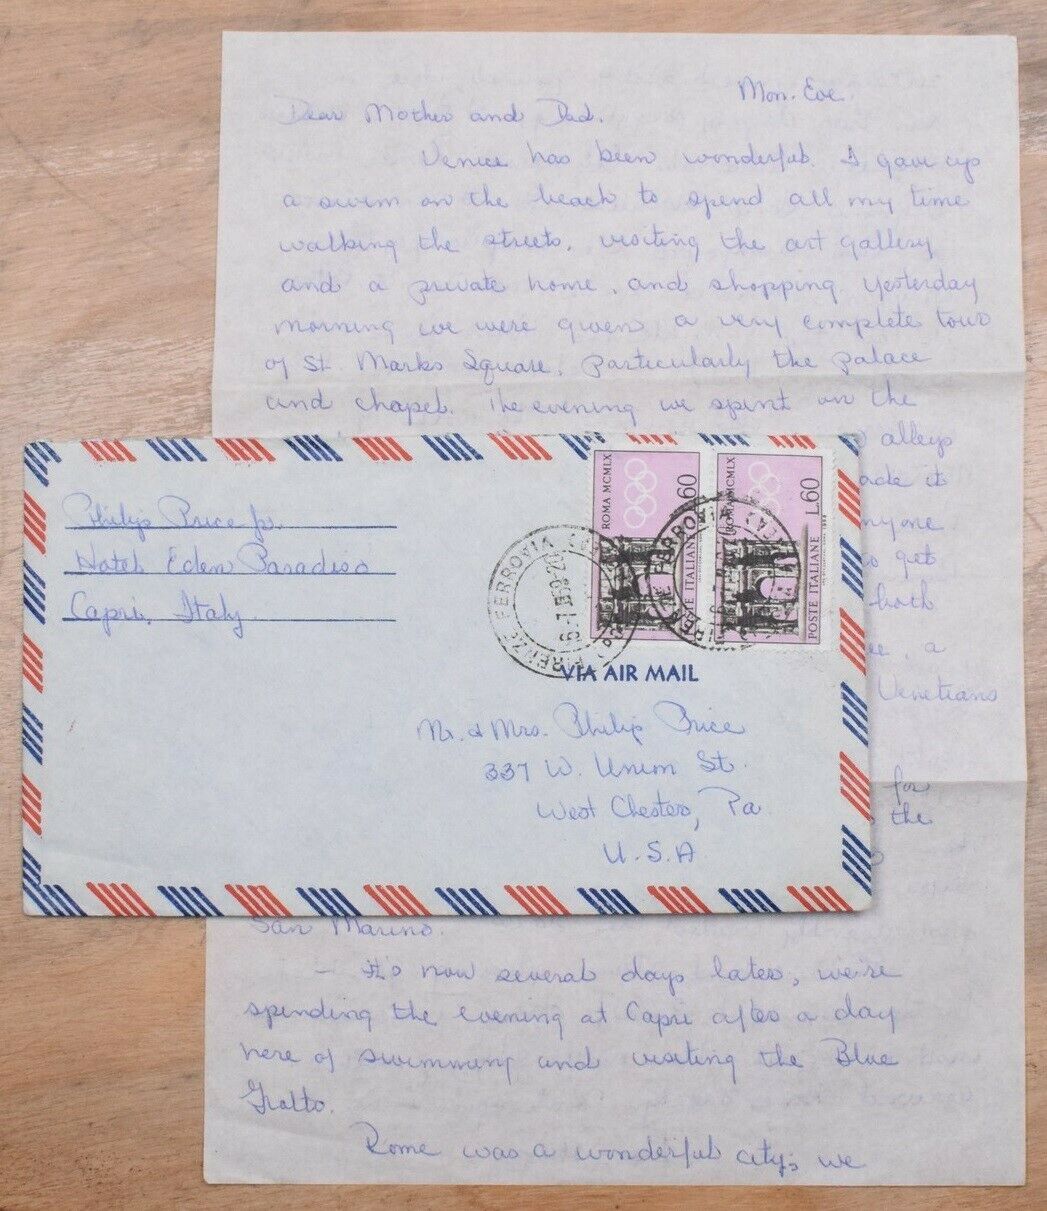 Mon. Eve.
Dear Mother and Dad,
Venice has been wonderful. I gave up
a swim on the beach to spend all my time
walking the streets, visiting the art gallery
and a private home, and shopping. Yesterday
morning we were given a very complete tour
of St. Marks Square, particularly the palace
and chapel. The evening we spent on the
alleys
it
get
both
a
Venetians
for
the
San Marino.
— It's now several days later, we're
spending the evening at Capri after a day
here of swimming and visiting the Blue
Grotto.
Rome was a wonderful city; we
Philip Price Jr.
Hotel Eden Paradiso
Capri, Italy
ROMA MCMLX
L.60
POSTE ITALIANE
ROMA MCMLX
L.60
POSTE ITALIANE
FIRENZE FERROVIA
VIA AIR MAIL
Mr. & Mrs. Philip Price
337 W. Union St.
West Chester, Pa
U.S.A